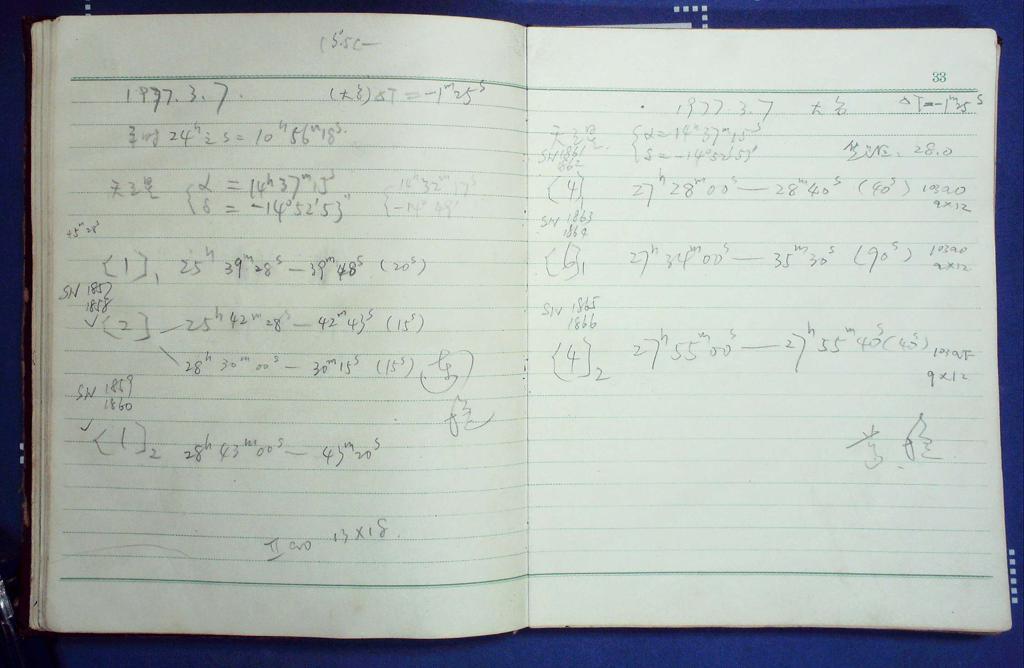 1977.3.7. ΔT = -1ᵐ25ˢ
24ʰ之 S = 10ʰ56ᵐ18ˢ
天王星 { α = 14ʰ37ᵐ15ˢ { 14ʰ32ᵐ15ˢ
δ = -14°52′53″ -14°49′
+5ᵐ28ˢ
{1}₁ 25ʰ39ᵐ28ˢ — 39ᵐ48ˢ (20ˢ)
SN 1857
1858
✓{2} 25ʰ42ᵐ28ˢ — 42ᵐ43ˢ (15ˢ)
28ʰ30ᵐ00ˢ — 30ᵐ15ˢ (15ˢ)
SN 1859
1860
✓{1}₂ 28ʰ43ᵐ00ˢ — 43ᵐ20ˢ
13×18.
33
1977.3.7 ΔT=-1ᵐ25ˢ
天王星 { α = 14ʰ37ᵐ15ˢ
δ = -14°52′53″ 28.0
SN 1861
862
{4}₁ 27ʰ28ᵐ00ˢ — 28ᵐ40ˢ (40ˢ) 103a0
9×12
SN 1863
1864
27ʰ34ᵐ00ˢ — 35ᵐ30ˢ (90ˢ) 103a0
9×12
SN 1865
1866
{4}₂ 27ʰ55ᵐ00ˢ — 27ʰ55ᵐ40ˢ (40ˢ)
9×12